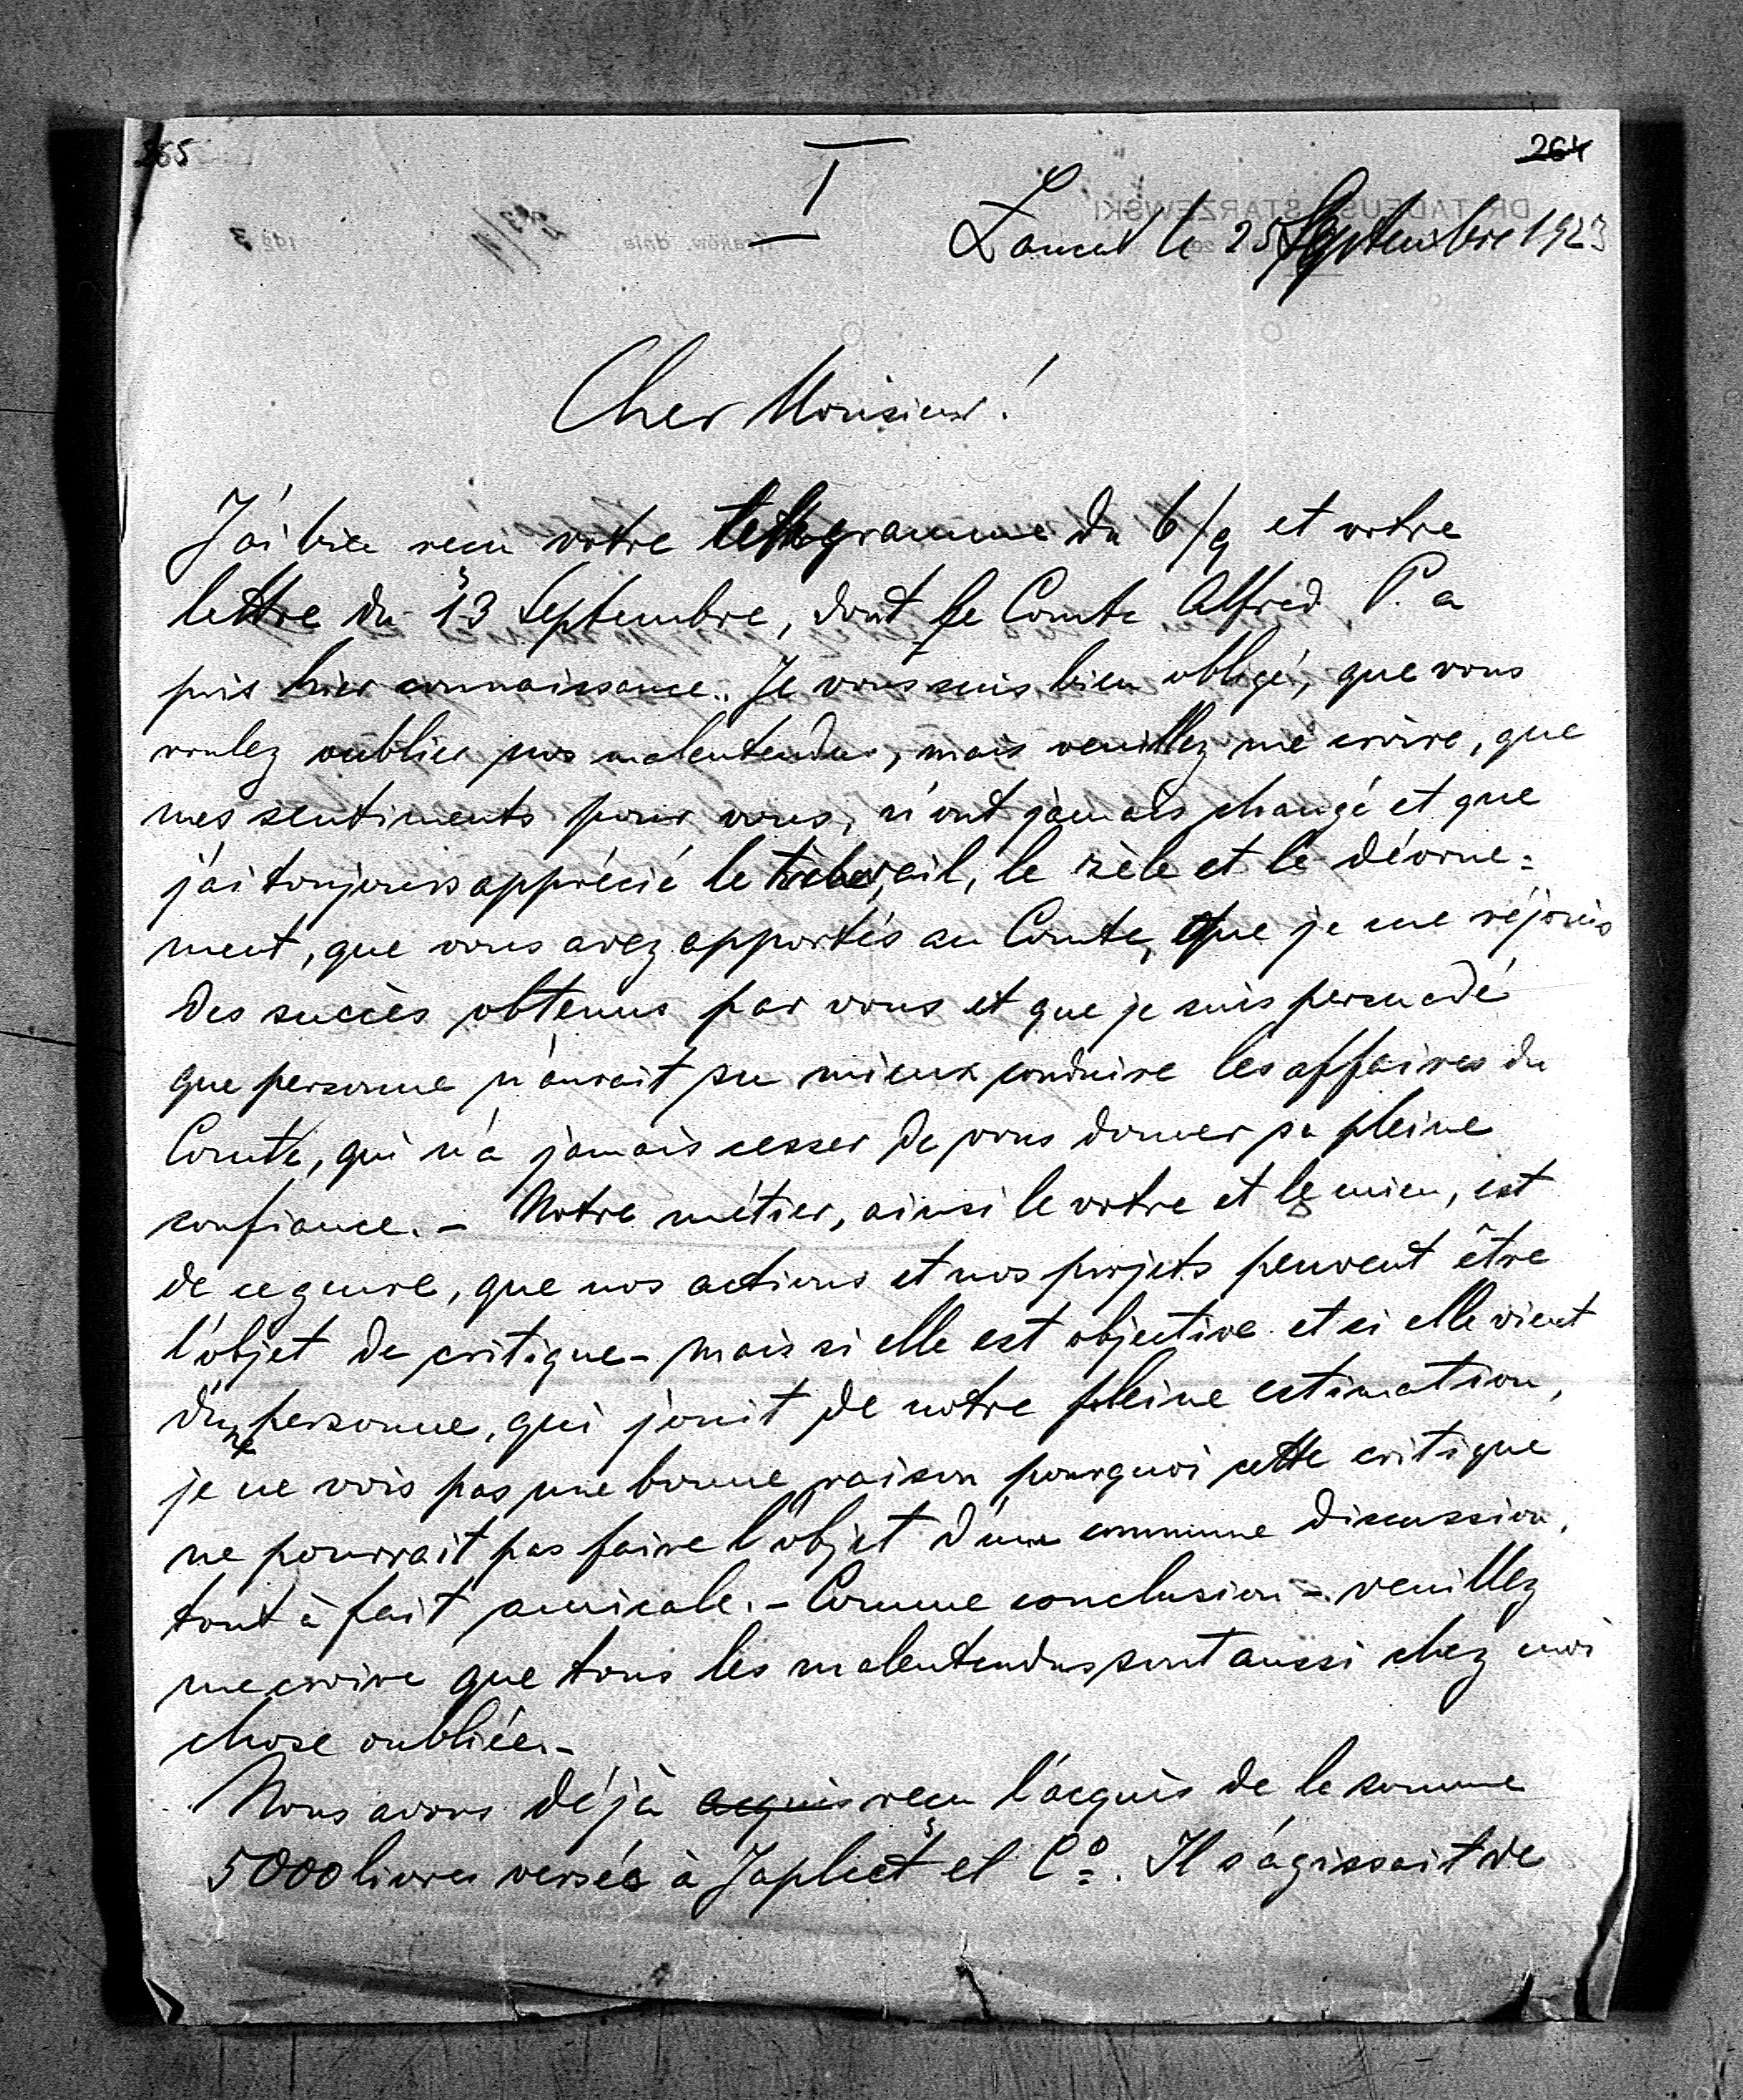 265
264
I
Lancut le 25 Septembre 1923
Cher Monsieur!
J'ai bien recu votre telegramme du 6/9 et votre
lettre du 13 Septembre, dont le Comte Alfred P. a
pris hier connaissance. Je vous suis bien obligé, que vous
voulez oublier nos malentendus, mais veuillez me croire, que
mes sentiments pour vous, n'ont jamais changé et que
j'ai toujours apprécié le travail, le zèle et le dévoue=
ment, que vous avez apportés au Comte, que je me réjouis
des succès obtenus par vous et que je suis persuadé
que personne n'aurait su mieux conduire les affaires du
Comte, qui n'a jamais cesser de vous donner sa pleine
confiance. - Notre métier, ainsi le votre et le mien, est
de ce genre, que nos actions et nos projets peuvent être
l'objet de critique - mais si elle est objective et si elle vient
d'une personne, qui jouit de notre pleine estimation,
je ne vois pas une bonne raison pourquoi cette critique
ne pourrait pas faire l'objet d'une commune discussion,
tout à fait amicale. - Comme conclusion - veuillez
me croire que tous les malentendus sont aussi chez moi
chose oubliée. -
Nous avons déjà acquis recu l'acquis de le somme
5000 livres versés à Japhet et Co. Il s'agissait de